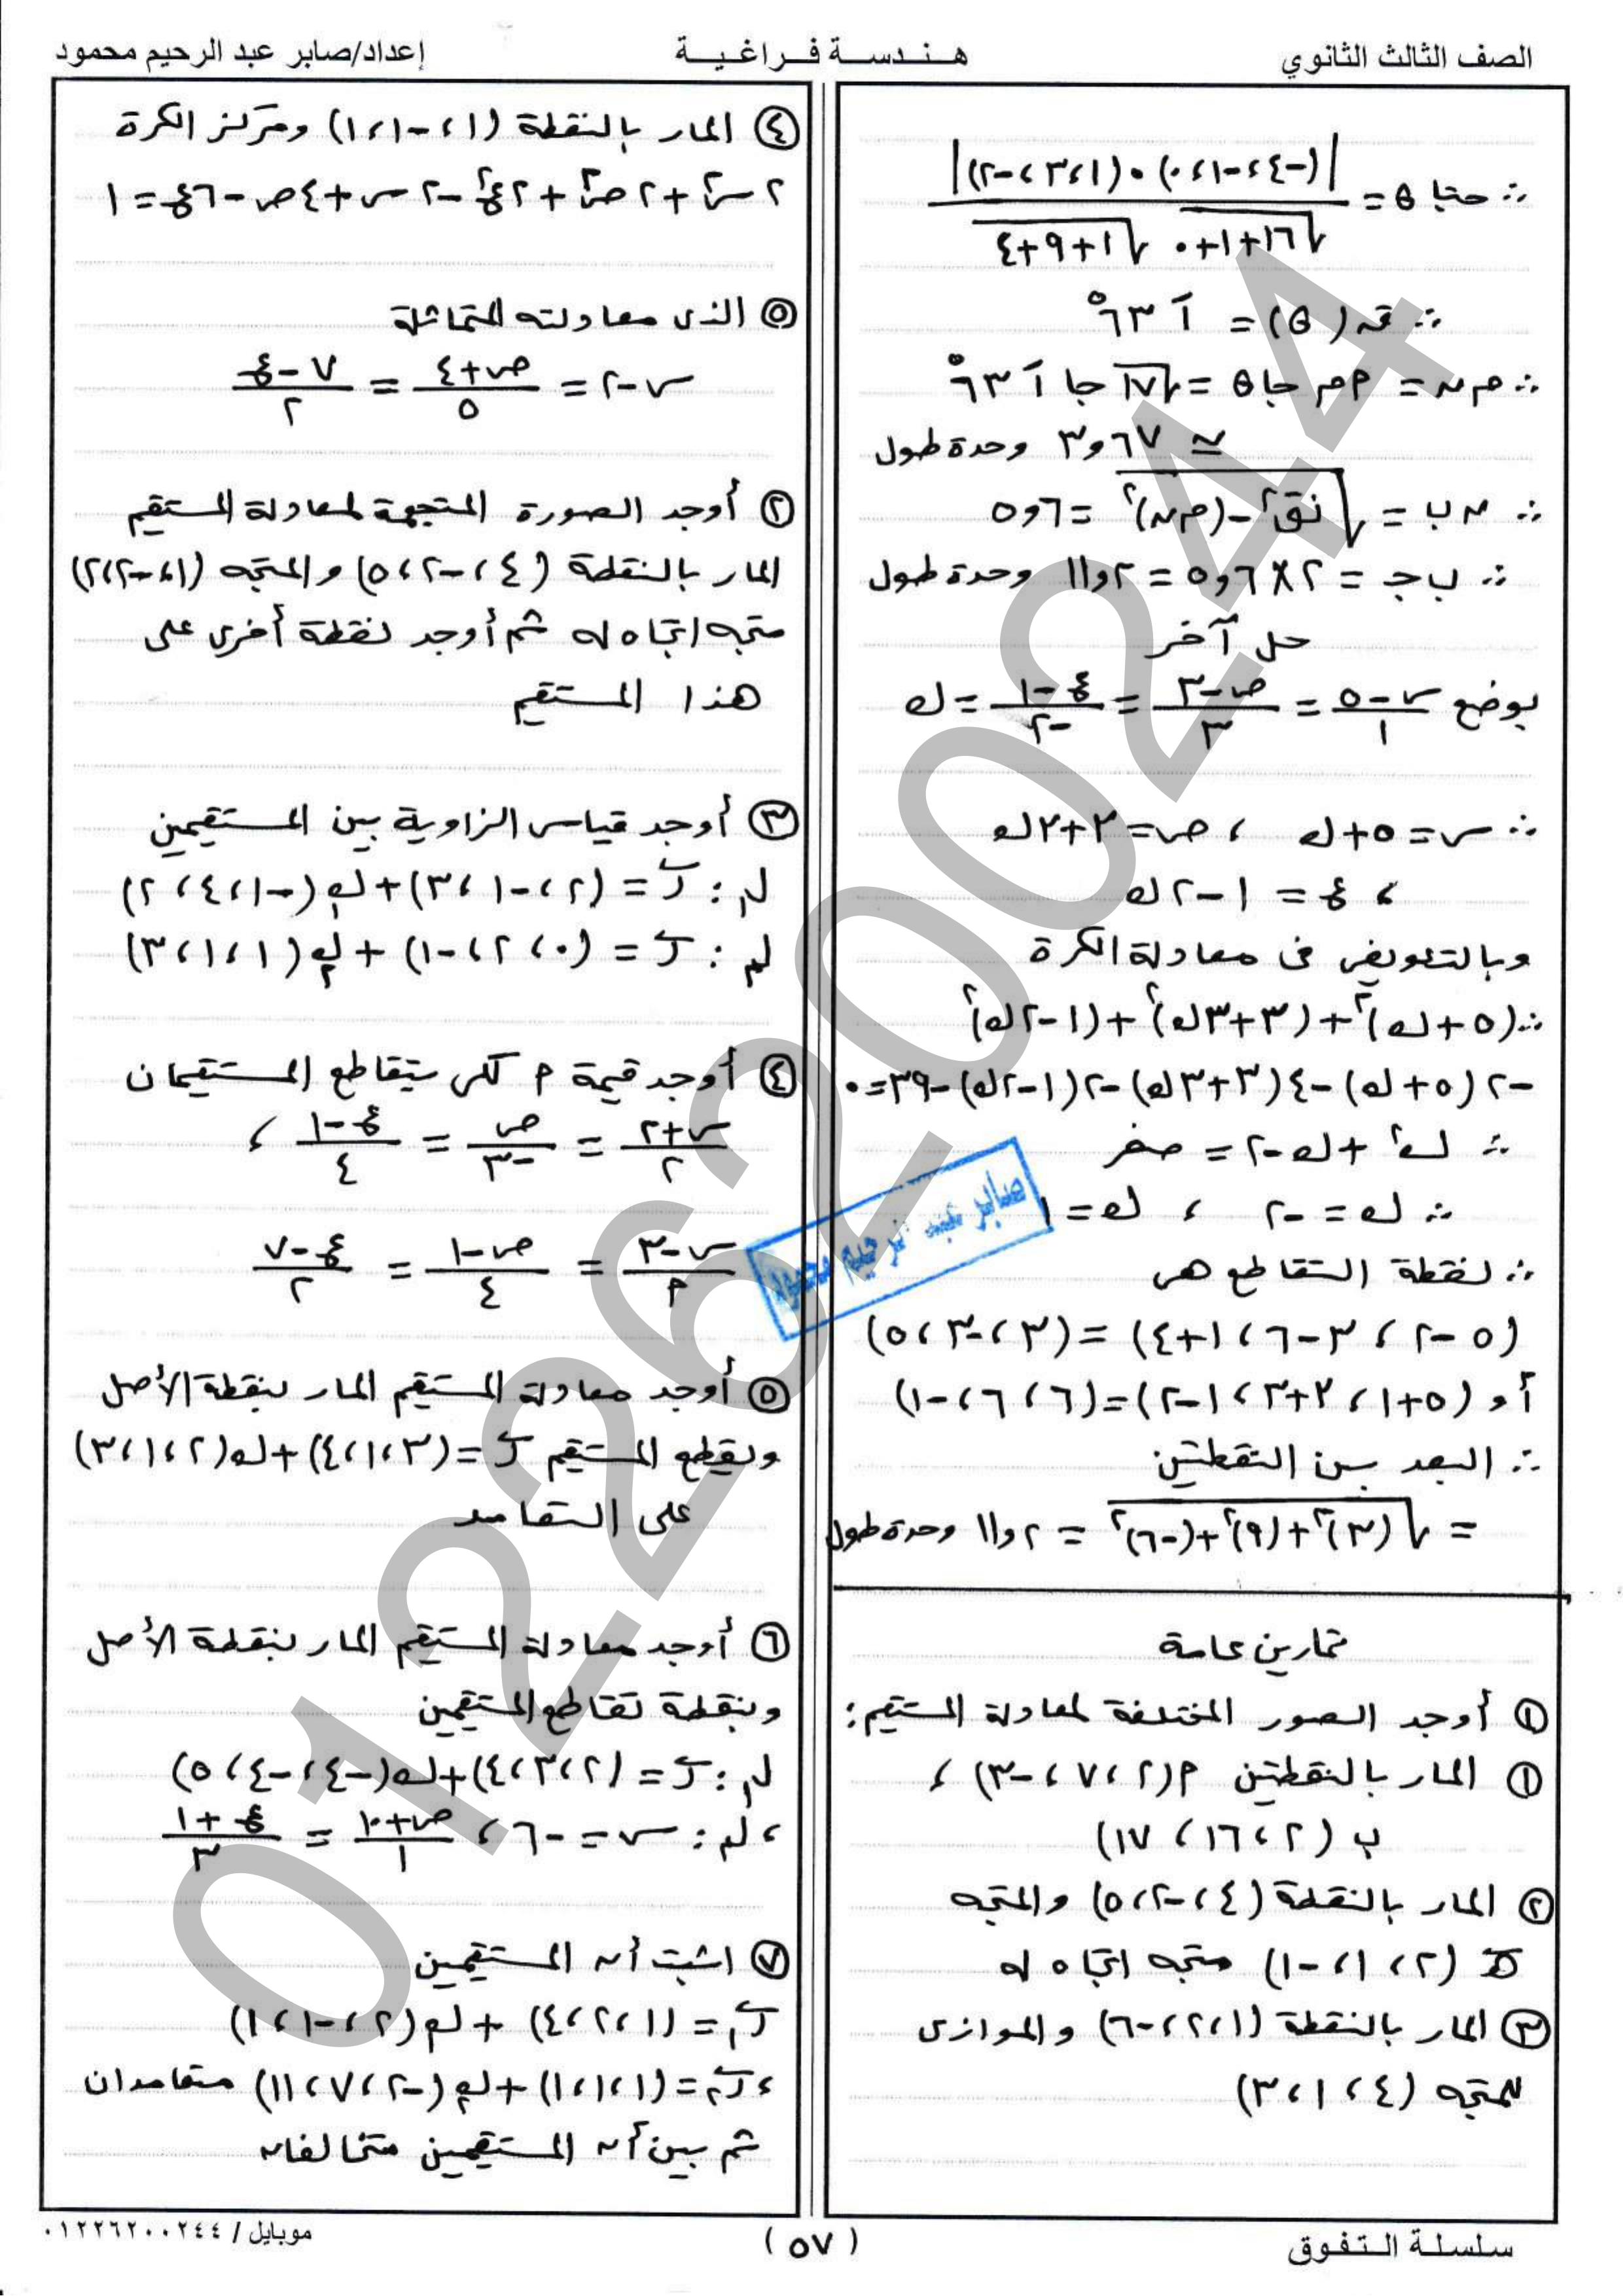 الصف الثالث الثانوي
هندسة فراغية
إعداد/صابر عبد الرحيم محمود
∴ حتا θ = |(-٤، -١، ٠) · (١، ٣، -٢)| / √(١٦+١+٠) √(١+٩+٤)
∴ قہ (θ) = ١َ ٦٣°
∴ م ن = م م جا θ = √١٧ جا ١َ ٦٣°
≃ ٣٫٦٧ وحدة طول
∴ ن ب = √(نق² - (م ن)²) = ٥٫٦
∴ ب جـ = ٢ × ٥٫٦ = ١١٫٢ وحدة طول
حل آخر
بوضع (س-٥)/١ = (ص-٣)/٣ = (ع-١)/-٢ = ك
∴ س = ٥+ك ، ص = ٣+٣ك
، ع = ١-٢ك
وبالتعويض فى معادلة الكرة
∴ (٥+ك)² + (٣+٣ك)² + (١-٢ك)²
-٢(٥+ك) -٤(٣+٣ك) -٢(١-٢ك) -٣٩ = ٠
∴ ك² + ك - ٢ = صفر
∴ ك = -٢ ، ك = ١
∴ نقطة التقاطع هى
(٥-٢ ، ٣-٦ ، ١+٤) = (٣، -٣، ٥)
أو (٥+١ ، ٣+٣ ، ١-٢) = (٦ ، ٦ ، -١)
∴ البعد بين النقطتين
= √((٣)² + (٩)² + (-٦)²) = ١١٫٢ وحدة طول
تمارين عامة
① أوجد الصور المختلفة لمعادلة المستقيم :
① المار بالنقطتين م (٢، ٧، -٣) ،
ب (٢، ١٦، ١٧)
② المار بالنقطة (٤، -٢، ٥) والمتجه
(٢، ١، -١) متجه اتجاه له
③ المار بالنقطة (١، ٢، -٦) والموازى
للمتجه (٤، ١، ٣)
④ المار بالنقطة (١، -١، ١) ومركز الكرة
٢س² + ٢ص² + ٢ع² - ٢س + ٤ص - ٦ع = ١
⑤ الذى معادلته المتماثلة
س-٢ = (ص+٤)/٥ = (٧-ع)/٢
② أوجد الصورة المتجهة لمعادلة المستقيم
المار بالنقطة (٤، -٢، ٥) والمتجه (١، -٢، ٢)
متجه اتجاه له ثم أوجد نقطة أخرى على
هذا المستقيم
③ أوجد قياس الزاوية بين المستقيمين
ل₁ : ر = (٢، -١، ٣) + ك₁ (-١، ٤، ٢)
ل₂ : ر = (٠، ٢، -١) + ك₂ (١، ١، ٣)
④ أوجد قيمة م لكى يتقاطع المستقيمان
(س+٢)/٢ = ص/-٣ = (ع-١)/٤ ،
(س-٣)/م = (ص-١)/٤ = (ع-٧)/٢
⑤ أوجد معادلة المستقيم المار بنقطة الأصل
ويقطع المستقيم ر = (٣، ١، ٤) + ك (٢، ١، ٣)
على التعامد
⑥ أوجد معادلة المستقيم المار بنقطة الأصل
وبنقطة تقاطع المستقيمين
ل₁ : ر = (٢، ٣، ٤) + ك (-٤، -٤، ٥)
، ل₂ : س = -٦ ، (ص+١٠)/١ = (ع+١)/٣
⑦ اثبت أن المستقيمين
ر₁ = (١، ٢، ٤) + ك₁ (٢، -١، ١)
، ر₂ = (١، ١، ١) + ك₂ (-٢، ٧، ١١) متعامدان
ثم بين أن المستقيمين متخالفان
صابر عبد الرحيم محمود
01226200244
سلسلة التفوق
( ٥٧ )
موبايل / ٠١٢٢٦٢٠٠٢٤٤